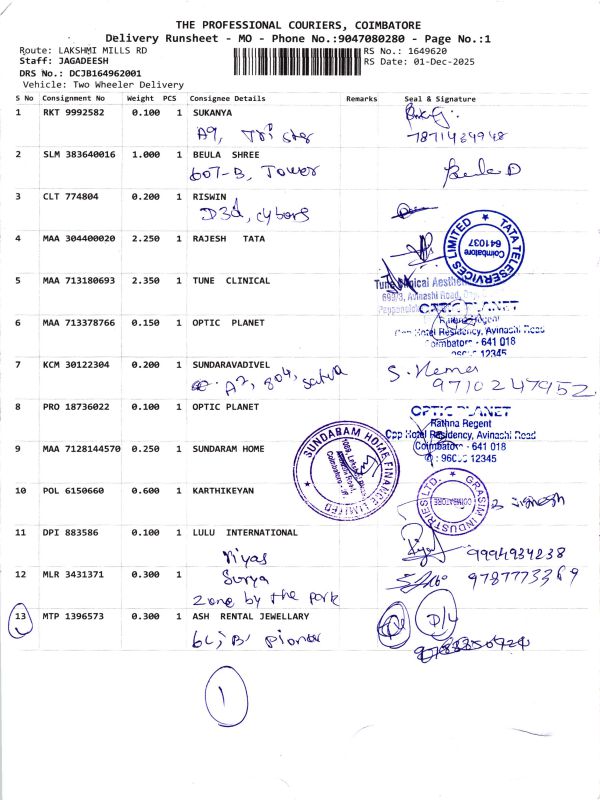 THE PROFESSIONAL COURIERS, COIMBATORE
Delivery Runsheet - MO - Phone No.:9047080280 - Page No.:1
Route: LAKSHMI MILLS RD
RS No.: 1649620
Staff: JAGADEESH
RS Date: 01-Dec-2025
DRS No.: DCJB164962001
Vehicle: Two Wheeler Delivery
S No Consignment No Weight PCS Consignee Details Remarks Seal & Signature
1 RKT 9992582 0.100 1 SUKANYA
A9, Tri star
7871439948
2 SLM 383640016 1.000 1 BEULA SHREE
607-B, Tower
Beula D
3 CLT 774804 0.200 1 RISWIN
D3d, cybors
4 MAA 304400020 2.250 1 RAJESH TATA
TATA TELESERVICES LIMITED
Coimbatore
641037
5 MAA 713180693 2.350 1 TUNE CLINICAL
Tune Clinical
Avinashi Road,
6 MAA 713378766 0.150 1 OPTIC PLANET
OPTIC PLANET
Regent
Opp Hotel Residency, Avinashi Road
Coimbatore - 641 018
12345
7 KCM 30122304 0.200 1 SUNDARAVADIVEL
A2, 804,
S. Hema
9710247952
8 PRO 18736022 0.100 1 OPTIC PLANET
OPTIC PLANET
Rathna Regent
Opp Hotel Residency, Avinashi Road
Coimbatore - 641 018
12345
9 MAA 7128144570 0.250 1 SUNDARAM HOME
SUNDARAM HOME FINANCE LIMITED
10 POL 6150660 0.600 1 KARTHIKEYAN
GRASIM INDUSTRIES LTD.
COIMBATORE
11 DPI 883586 0.100 1 LULU INTERNATIONAL
riyas
9994934238
12 MLR 3431371 0.300 1
Surya
9787773369
zone by the park
13 MTP 1396573 0.300 1 ASH RENTAL JEWELLARY
D/L
pioner
1